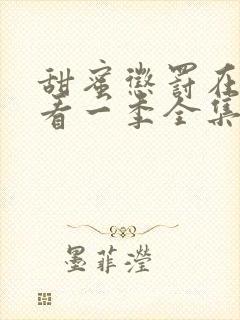 甜蜜懲罰在
看一季全集
墨菲瀅